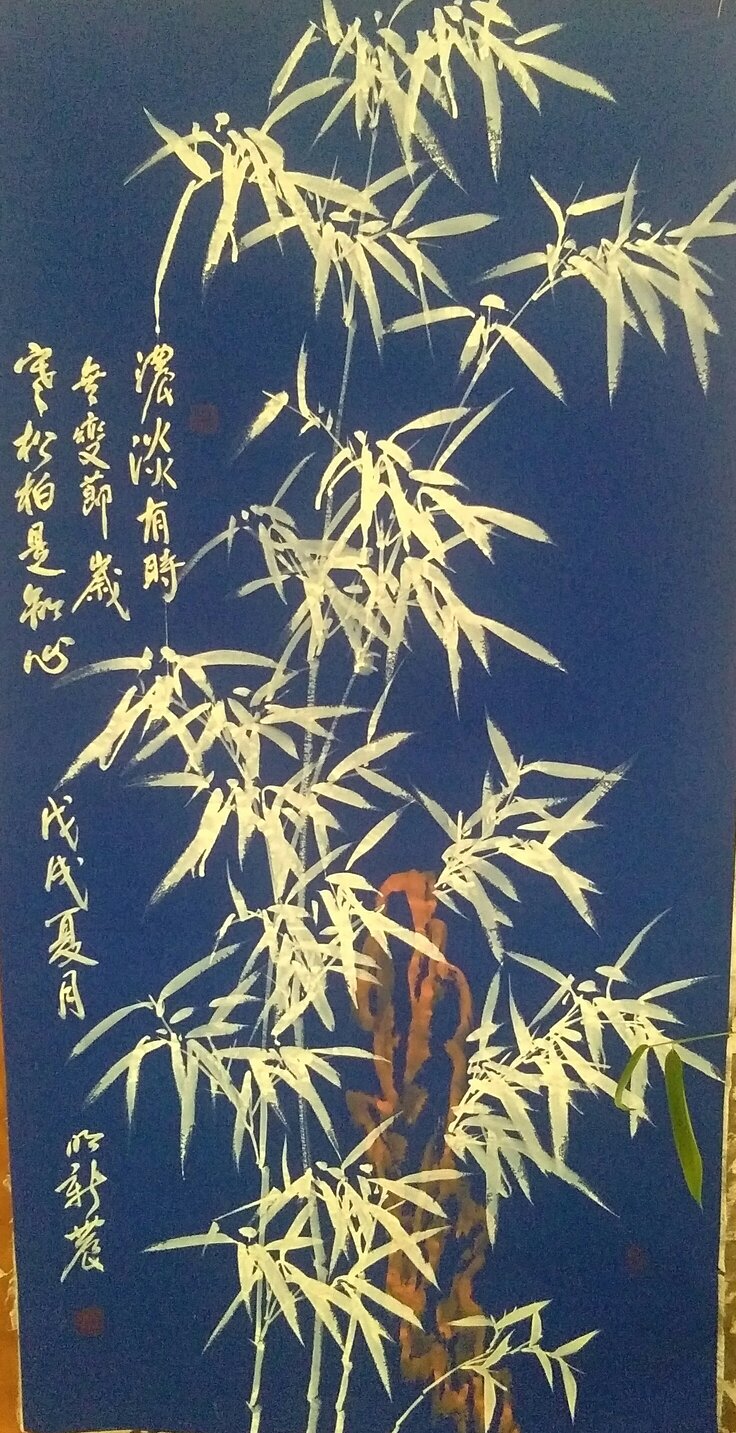 濃淡有時
無變節歲
寒松柏是知心
戊戌夏月
新農